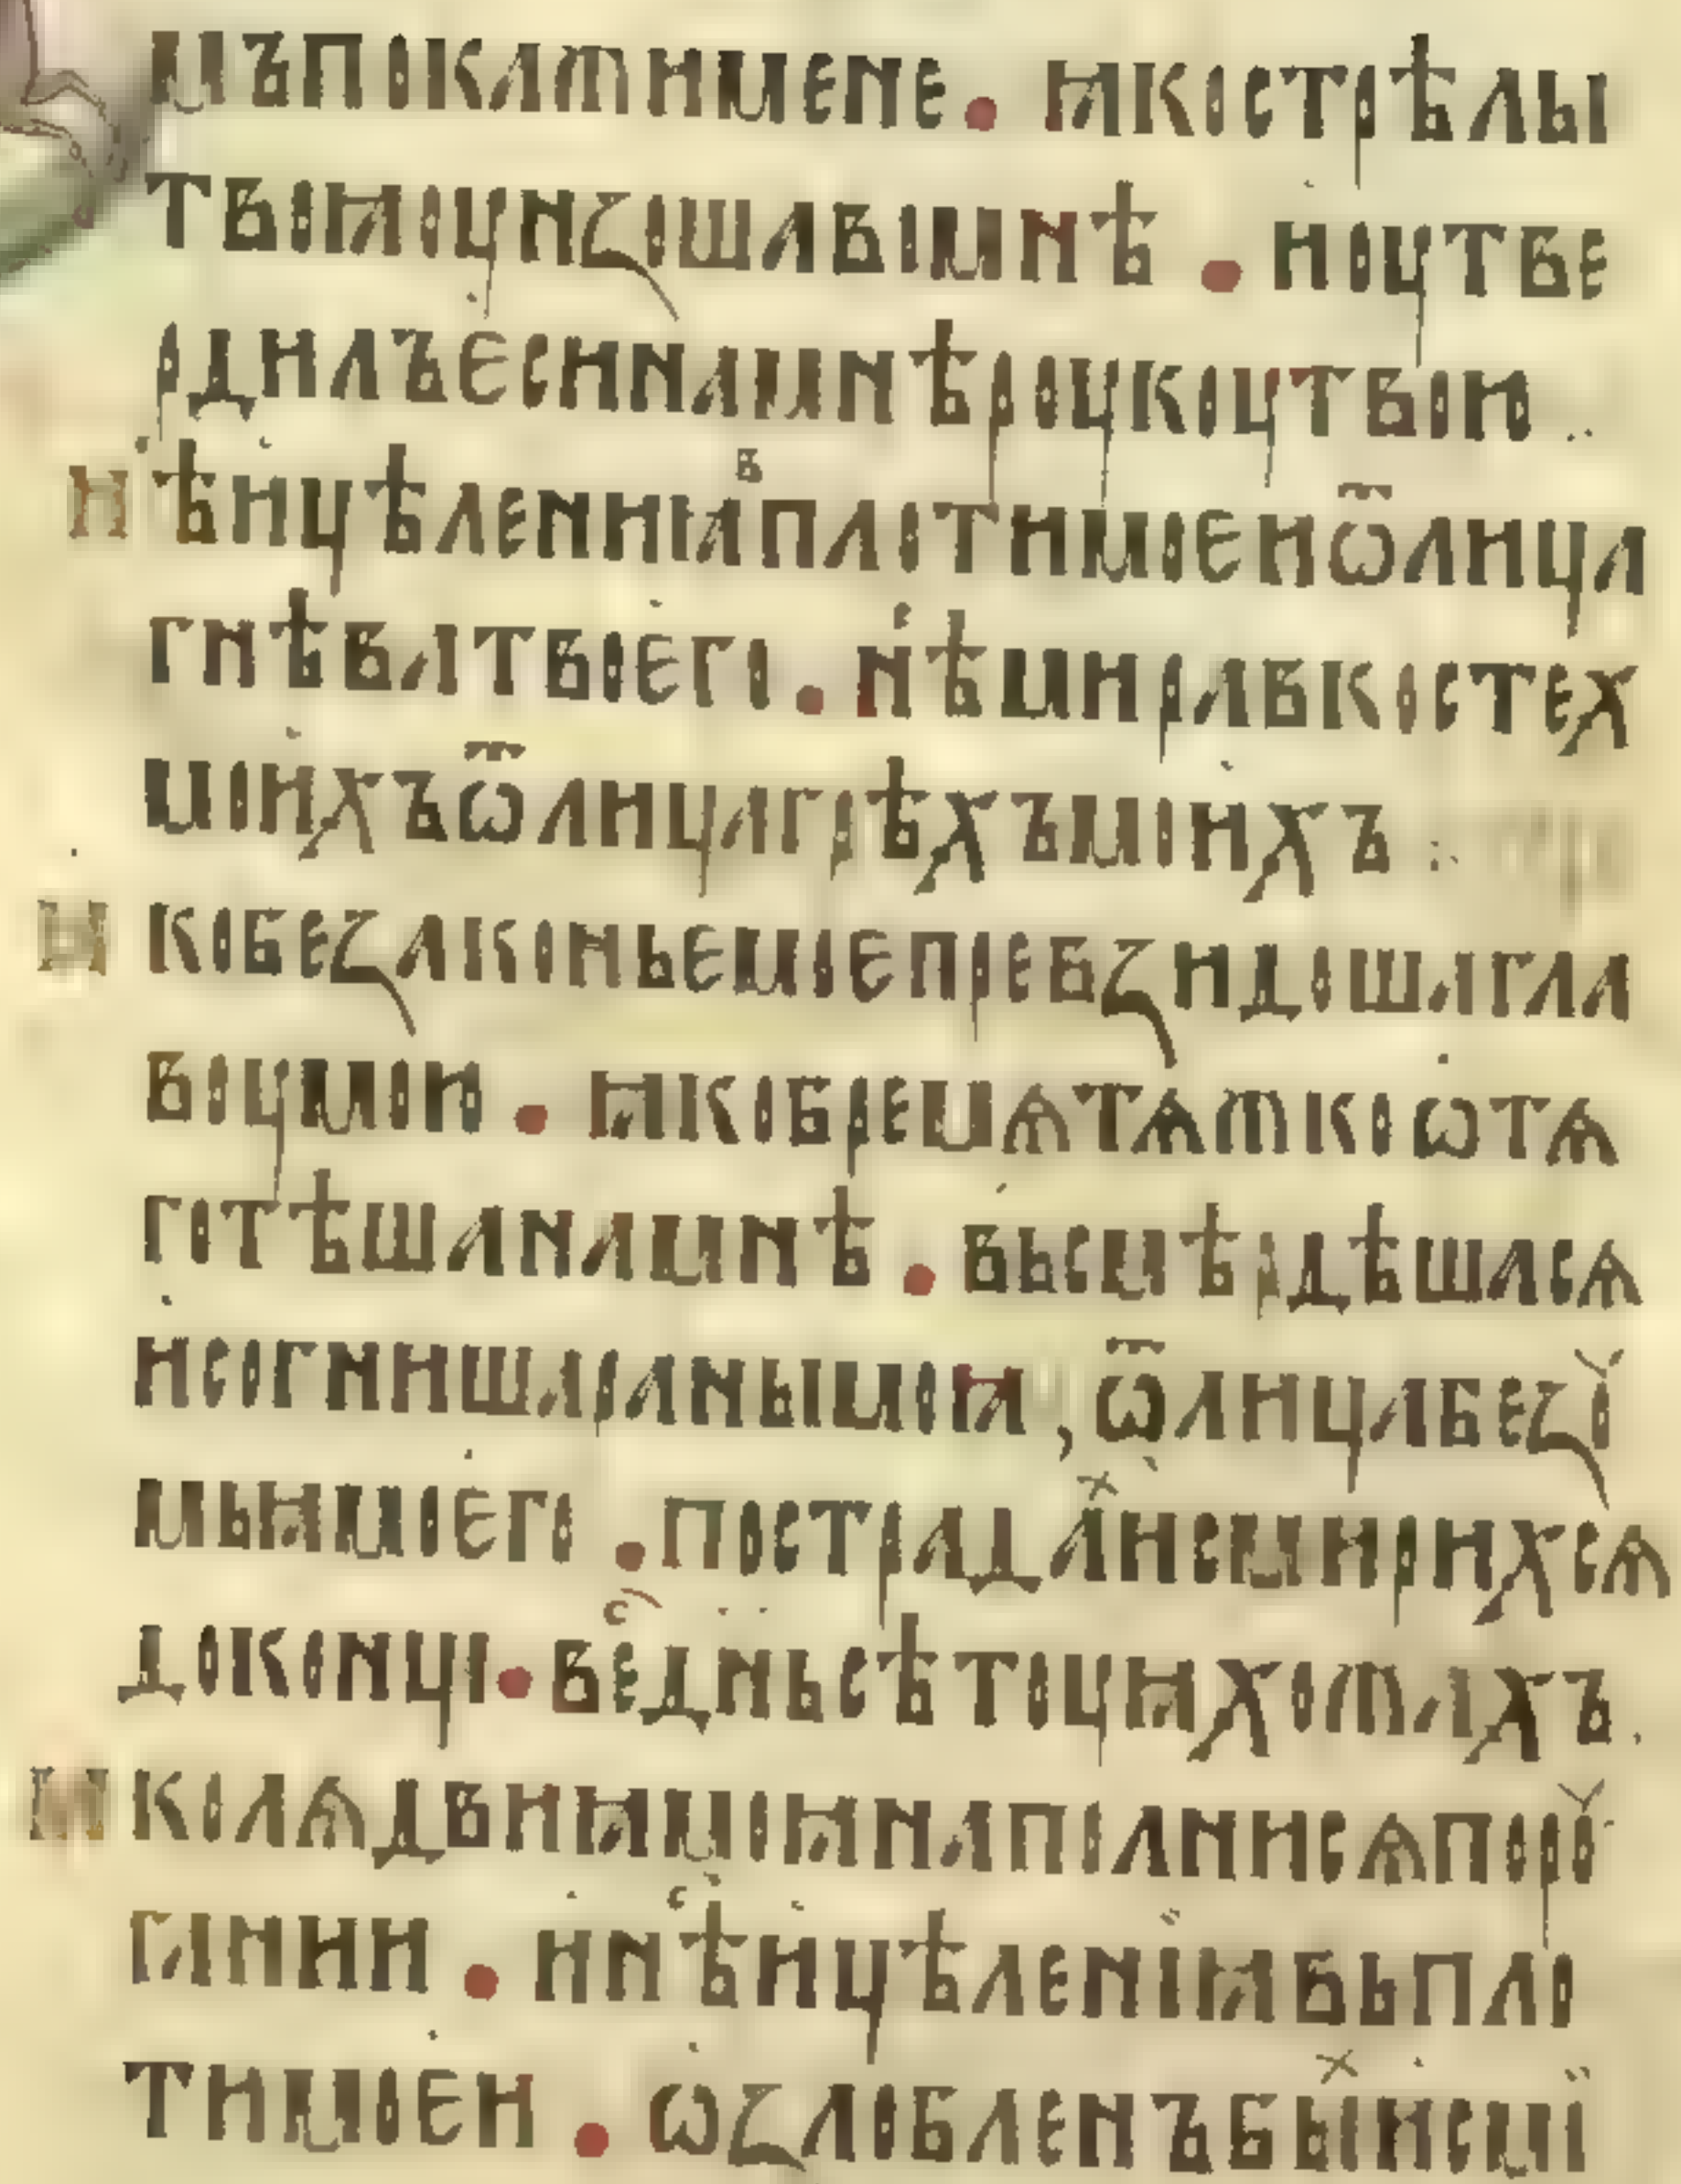 мъпокажимене. ꙗкострѣлы
твоꙗоунзошавꙑмнѣ. иоутве
рдилъѥсинамнѣроукоутвою
нⷭ҇ѣицѣлениꙗвⷡплотимоѥиѿлица
гнѣватвоѥго. нⷭ҇ѣмиравкостех
моихъѿлицагрѣхъмоихъ
ꙗкобезаконьѥмоѥпревзидошагла
воумою. ꙗкобремѧтѧжкоѡтѧ
готѣшанамнѣ. вьсмѣрдѣшасѧ
исогнишараныимоꙗ, ѿлицабезꙋ
мьꙗмоѥго. пострадаⷯисмирихсѧ
доконца. веⷭ҇дньсѣтоуꙗхожахъ.
ꙗколѧдвиꙗмоꙗнаполнисѧпорꙋ
гании. инⷭ҇ѣицѣлениꙗвьпло
тимоѥи. ѡзлобленъбыⷯисмї